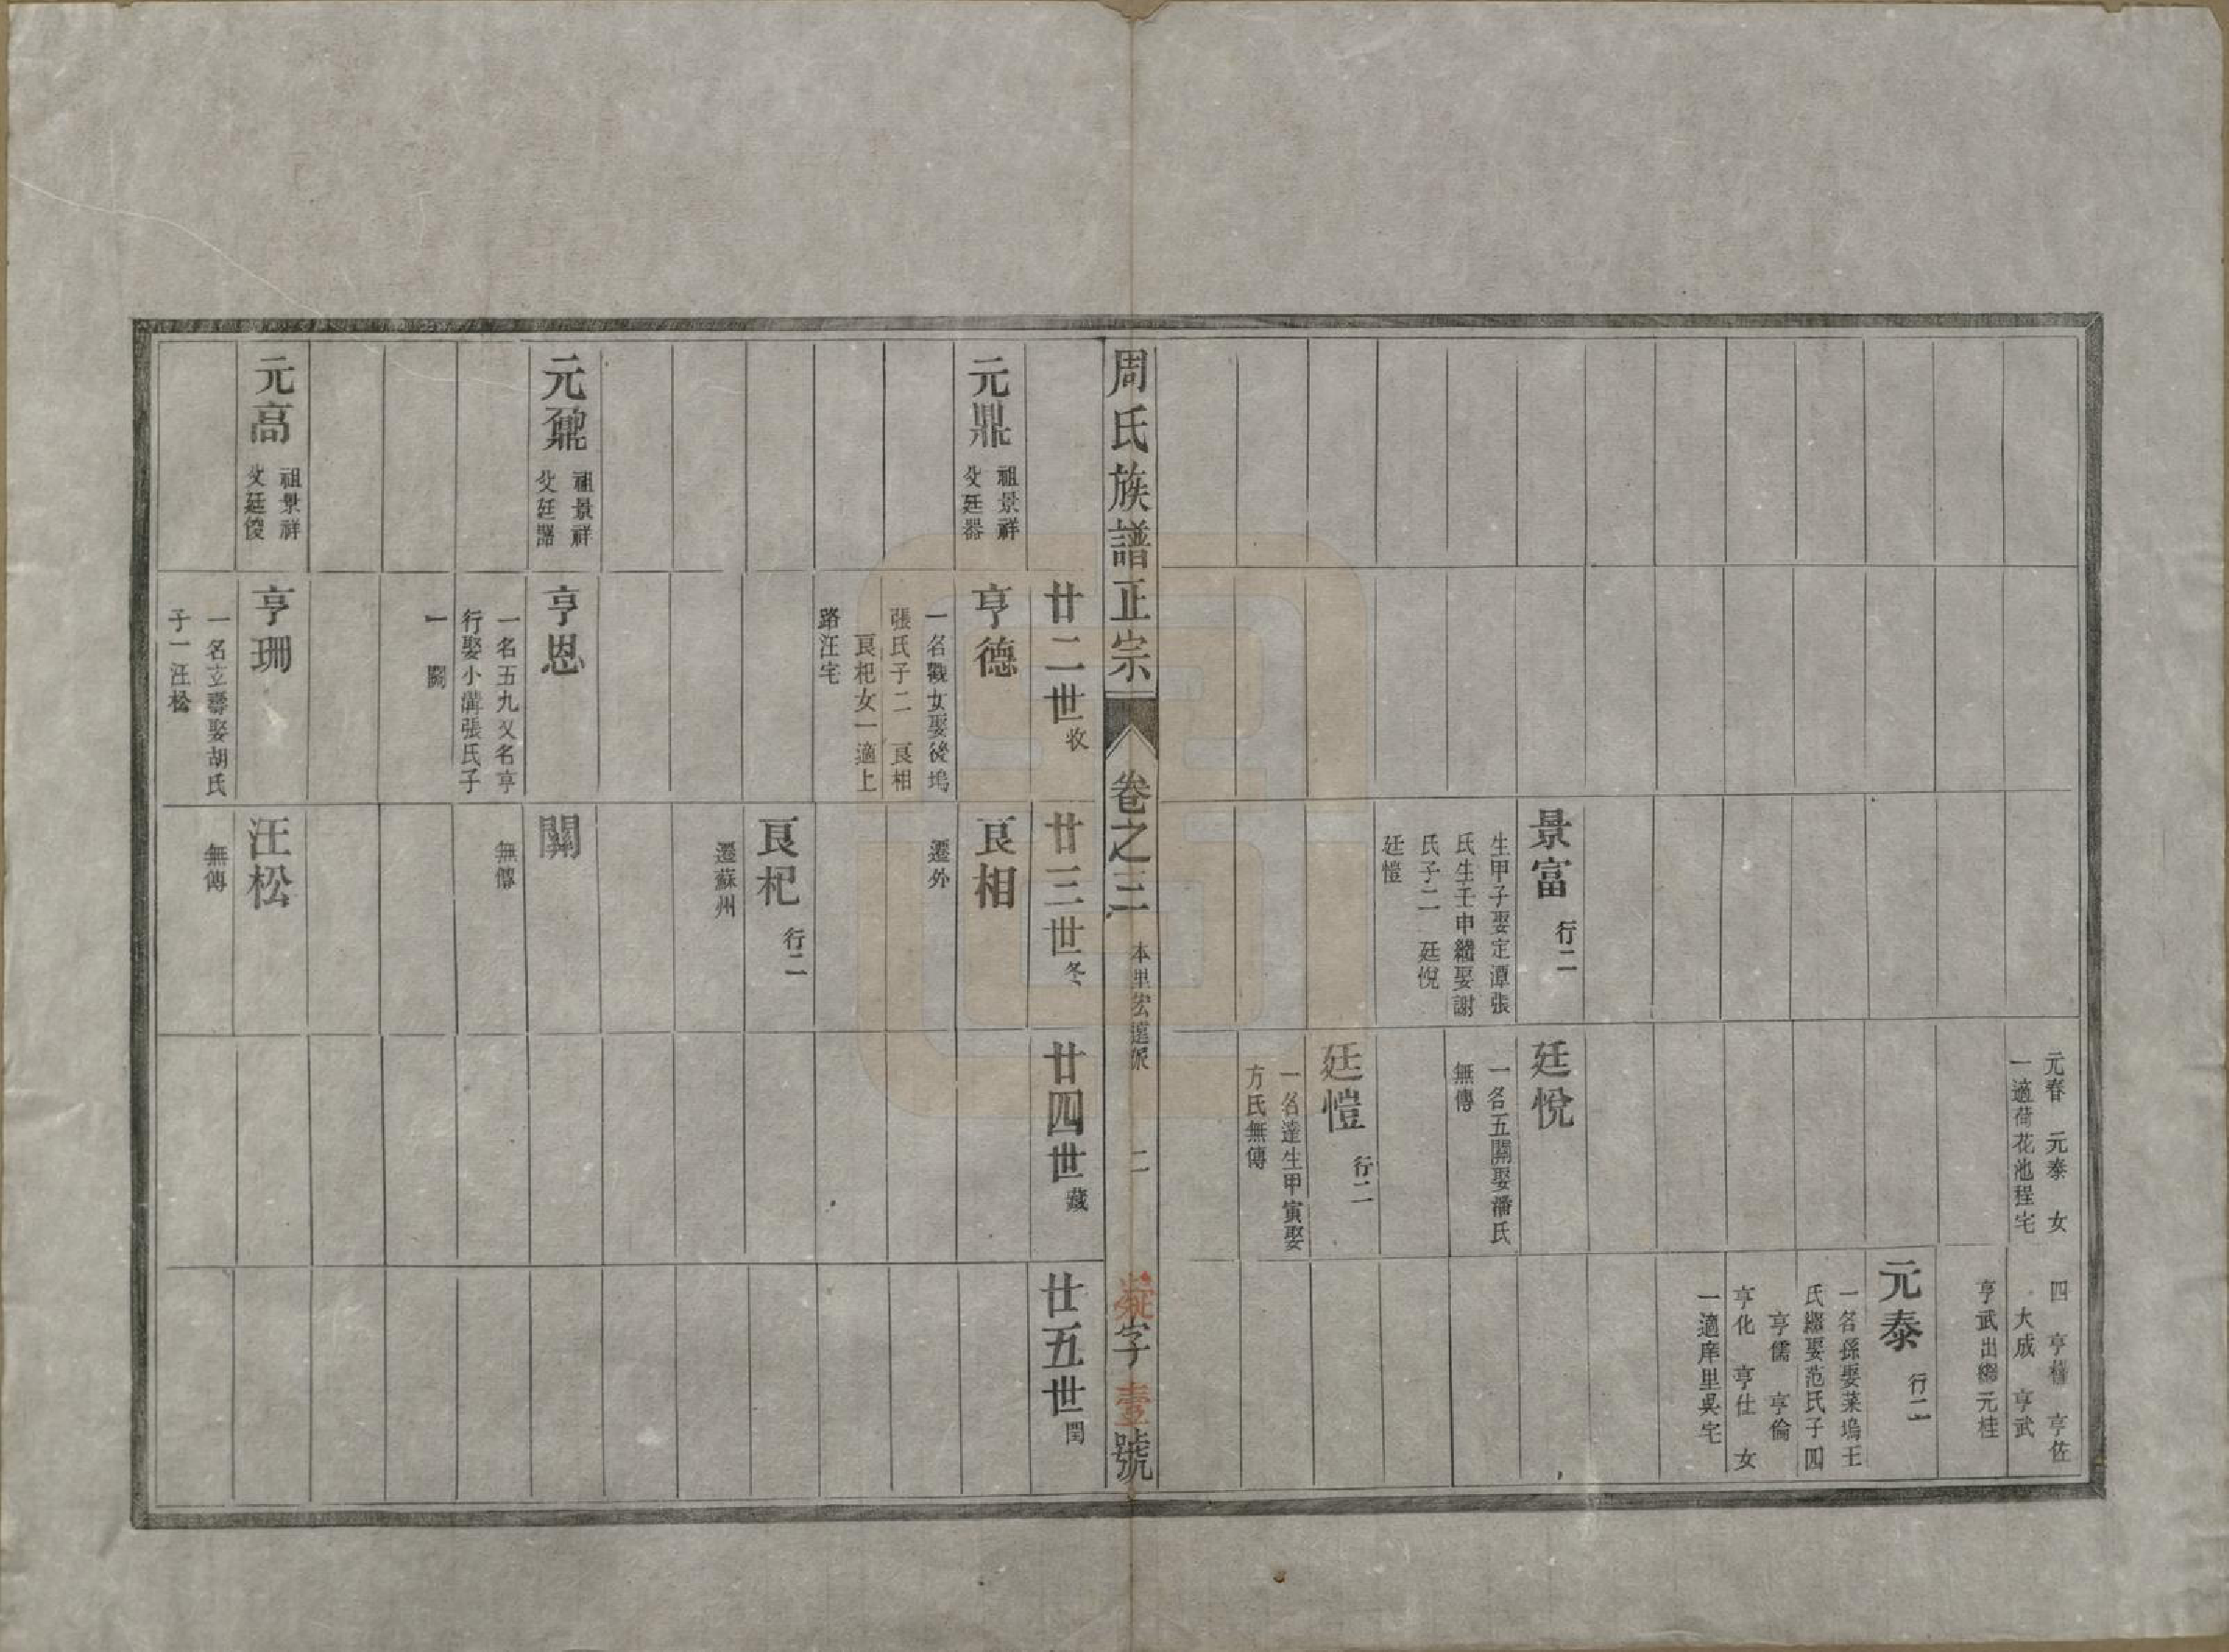 元春　元泰　女
一適荷花池程宅
四　亨　亨佐
大成　亨武
亨武出繼元桂
元泰　行二
一名孫娶萊塢王
氏繼娶范氏子四
亨儒　亨倫
亨化　亨仕　女
一適庠里吳宅
景富　行二
生甲子娶定潭張
氏生壬申繼娶謝
氏子二　廷悅
廷愷
廷悅
一名五關娶潘氏
無傳
廷愷　行二
一名達生甲寅娶
方氏無傳
周氏族譜正宗　卷之三　本里宏遠派　二　字壹號
廿二世收
廿三世冬
廿四世藏
廿五世閏
元鼎　祖景祥
父廷器
亨德
一名戬女娶後塢
張氏子二　良相
良杞女一適上
路汪宅
良相
遷外
良杞　行二
遷蘇州
元鼐　祖景祥
父廷器
亨恩
一名五九又名亨
行娶小溝張氏子
一　關
關
無傳
元高　祖景祥
父廷俊
亨珊
一名立壽娶胡氏
子一汪松
汪松
無傳